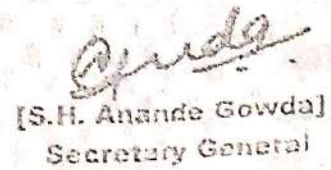 [S.H. Anande Gowda]
Secretary General